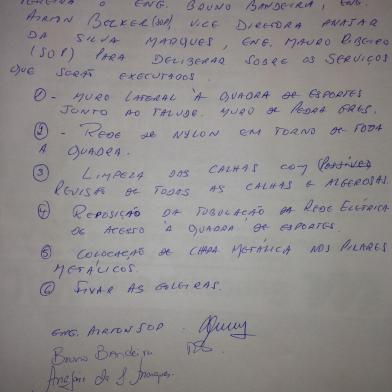 PEREIRA O ENG. BRUNO BANDEIRA, ENG.
AIRTON BECKER (SOP), VICE DIRETORA ANAJAR
DA SILVA MARQUES, ENG. MAURO RIBEIRO
(SOP) PARA DELIBERAR SOBRE OS SERVIÇOS
QUE SERÃO EXECUTADOS.
① - MURO LATERAL À QUADRA DE ESPORTES
JUNTO AO TALUDE. MURO DE PEDRA GRÊS.
② - REDE DE NYLON EM TORNO DE TODA
A QUADRA.
③ LIMPEZA DAS CALHAS COM POSSÍVEL
REVISÃO DE TODAS AS CALHAS E ALGEROSAS.
④ REPOSIÇÃO DA TUBULAÇÃO DA REDE ELÉTRICA
DE ACESSO À QUADRA DE ESPORTES.
⑤ COLOCAÇÃO DE CHAPA METÁLICA NOS PILARES
METÁLICOS.
⑥ FIXAR AS GOLEIRAS.
ENG. AIRTON SOP.
Bruno Bandeira
da S. Marques